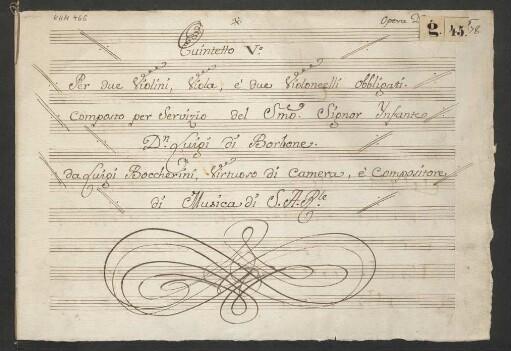 KHM 466
Opera
g. 45
Quintetto V.º
Per due Violini, Viola, é due Violoncelli obbligati.
Composto per Servizio del Smo. Signor Infante
Dn. Luigi di Borbone.
da Luigi Boccherini, Virtuoso di Camera, é Compositore
di Musica di S. A. Rle